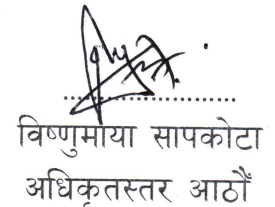 विष्णुमाया सापकोटा
अधिकृतस्तर आठौँ